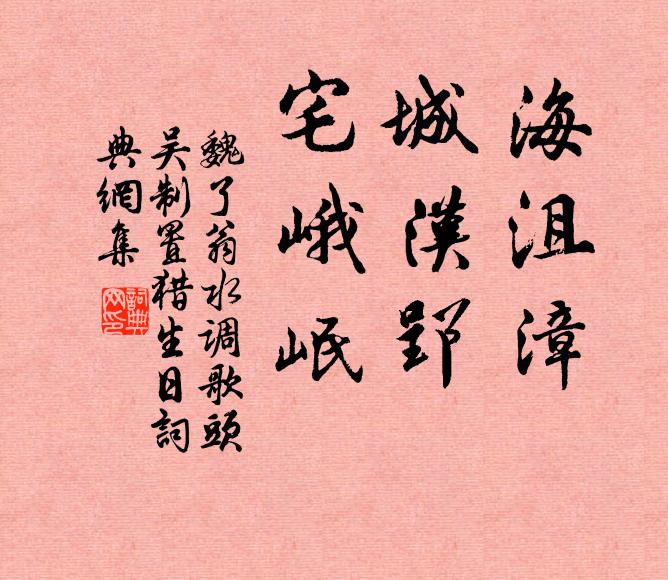 海沮漳
城漢郢
宅峨岷
魏了翁水调歌頭
吴制置猎生日詞
典網集
詞典网印